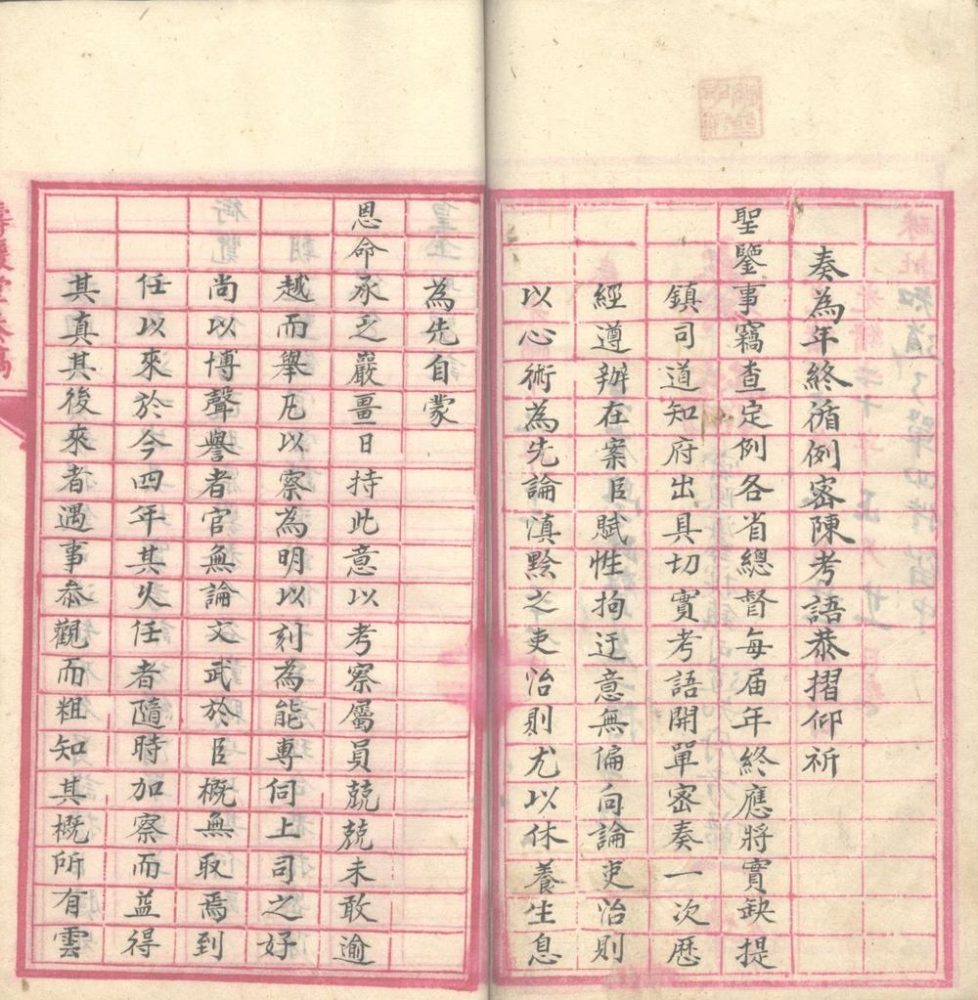 奏為年終循例密陳考語恭摺仰祈
聖鑒事竊查定例各省總督每屆年終應將實缺提
鎮司道知府出具切實考語開單密奏一次歷
經遵辦在案臣賦性拘迂意無偏向論吏治則
以心術為先論滇黔之吏治則尤以休養生息
為先自蒙
恩命承乏巖畺日持此意以考察屬員兢兢未敢逾
越而舉凡以察為明以刻為能專伺上司之好
尚以博聲譽者官無論文武於臣概無取焉到
任以來於今四年其久任者隨時加察而益得
其真其後來者遇事叅觀而粗知其概所有雲